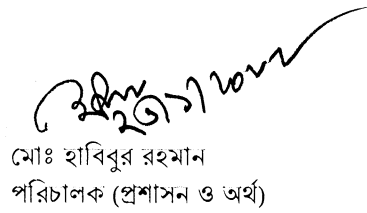 মোঃ হাবিবুর রহমান
পরিচালক (প্রশাসন ও অর্থ)